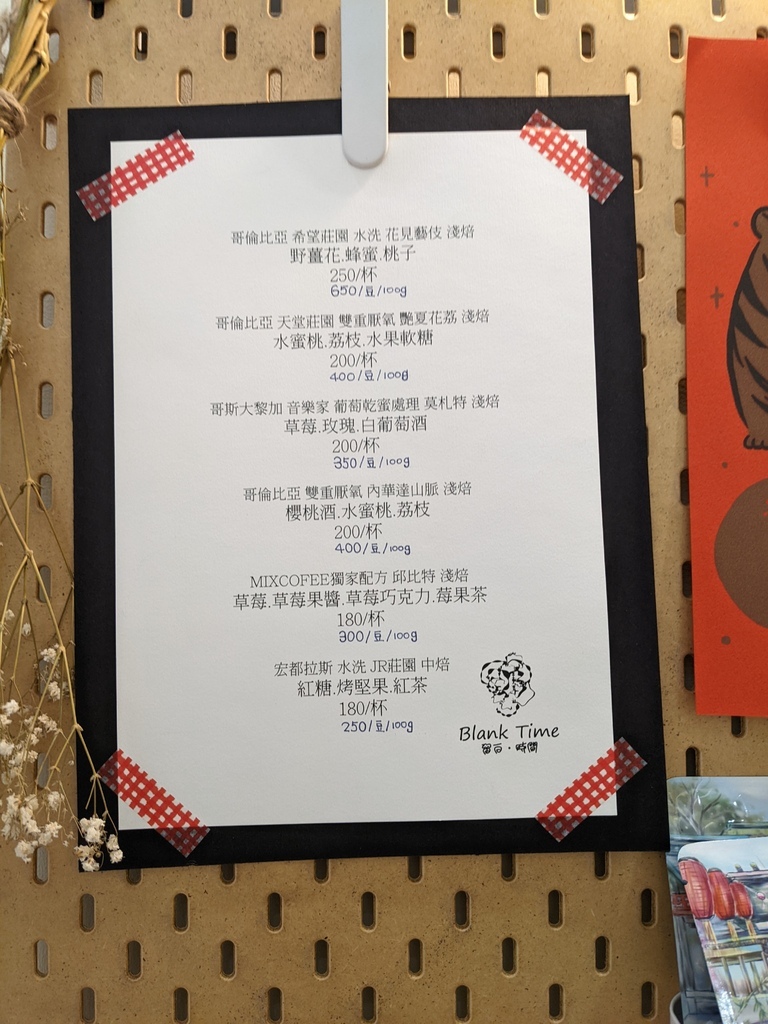 哥倫比亞 希望莊園 水洗 花見藝伎 淺焙
野薑花.蜂蜜.桃子
250/杯
650/豆/100g
哥倫比亞 天堂莊園 雙重厭氧 艷夏花荔 淺焙
水蜜桃.荔枝.水果軟糖
200/杯
400/豆/100g
哥斯大黎加 音樂家 葡萄乾蜜處理 莫札特 淺焙
草莓.玫瑰.白葡萄酒
200/杯
350/豆/100g
哥倫比亞 雙重厭氧 內華達山脈 淺焙
櫻桃酒.水蜜桃.荔枝
200/杯
400/豆/100g
MIXCOFEE獨家配方 邱比特 淺焙
草莓.草莓果醬.草莓巧克力.莓果茶
180/杯
300/豆/100g
宏都拉斯 水洗 JR莊園 中焙
紅糖.烤堅果.紅茶
180/杯
250/豆/100g
Blank Time
留白·時間